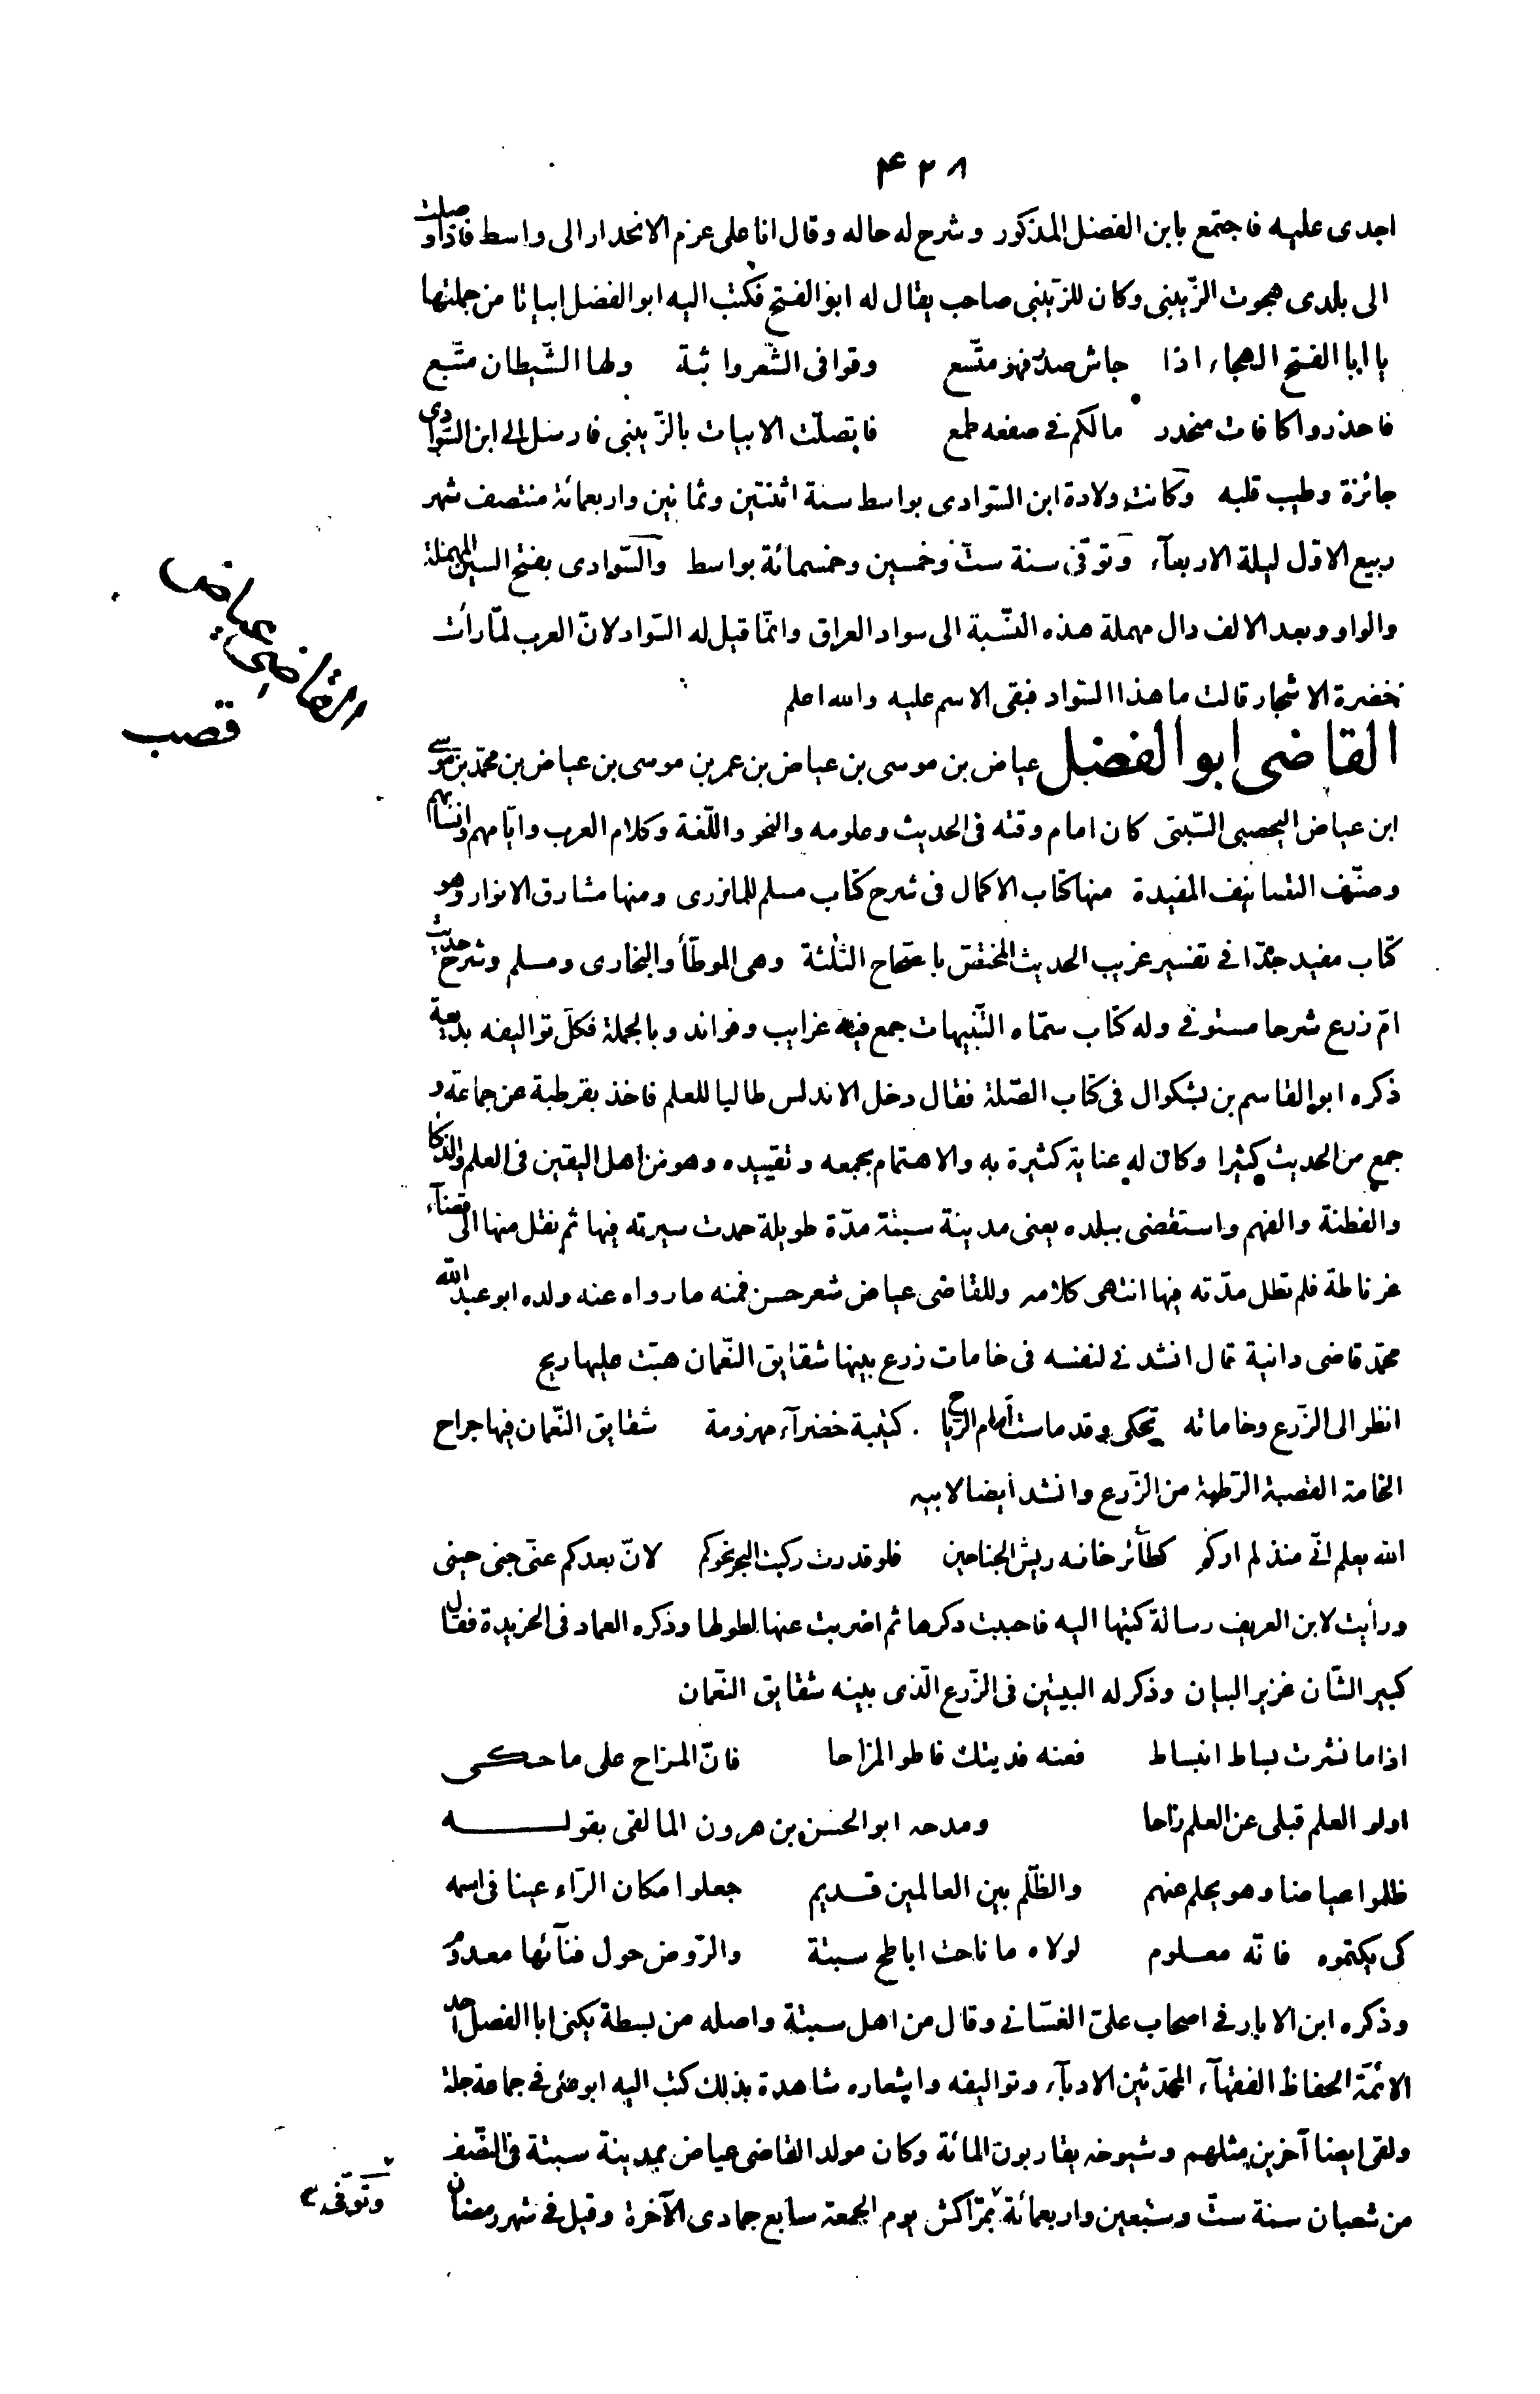 ۴۲۸
اجدى عليه فاجتمع بابن الفضل المذكور وشرح له حاله وقال انا على عزم الانحدار الى واسط فاذا وصلت
الى بلدى هجوت الزّينبى وكان للزّينبى صاحب يقال له ابو الفتح فكتب اليه ابو الفضل ابياتا من جملتها
يا ابا الفتح الهجاء اذا جاش صدر فهو متّسع وقوافى الشّعر واثبة ولها الشّيطان متّبع
فاحذروا كافات منحدر مالكم فى صفعه طمع فاتصلت الابيات بالزّينبى فارسل الى ابن السّوادى
جائزة وطيب قلبه وكانت ولادة ابن السّوادى بواسط سنة اثنتين وثمانين واربعمائة منتصف شهر
ربيع الاوّل ليلة الاربعآء وتوفّى سنة ستّ وخمسين وخمسمائة بواسط والسّوادى بفتح السين المهملة
والواو وبعد الالف دال مهملة هذه النسّبة الى سواد العراق وانّما قيل له السّواد لانّ العرب لمّا رأت
خضرة الاشجار قالت ما هذا السّواد فبقى الاسم عليه والله اعلم
القاضى ابو الفضل عياض بن موسى بن عياض بن عمر بن موسى بن عياض بن محمّد بن موسى
ابن عياض اليحصبى السّبتى كان امام وقته فى الحديث وعلومه والنحو واللّغة وكلام العرب وايّامهم وانسابهم
وصنّف التصانيف المفيدة منها كتاب الاكمال فى شرح كتاب مسلم للمازرى ومنها مشارق الانوار وهو
كتاب مفيد جدّا فى تفسير غريب الحديث المختصّ بالصّحاح الثلثة وهى الموطّأ والبخارى ومسلم وشرح حديث
امّ زرع شرحا مستوفى وله كتاب سمّاه التّنبيهات جمع فيه غرايب وفوائد وبالجملة فكلّ تواليفه بديعة
ذكره ابو القاسم بن بشكوال فى كتاب الصّلة فقال دخل الاندلس طالبا للعلم فاخذ بقرطبة عن جماعة و
جمع من الحديث كثيرا وكان له عناية كثيرة به والاهتمام بجمعه وتقييده وهو من اهل اليقين فى العلم والذكا
والفطنة والفهم واستقضى ببلده يعنى مدينة سبتة مدّة طويلة حمدت سيرته فيها ثم نقل منها الى قضآء
غرناطة فلم تطل مدّته فيها انتهى كلامه وللقاضى عياض شعر حسن فمنه ما رواه عنه ولده ابو عبد الله
محمّد قاضى دانية قال انشدنى لنفسه فى خامات زرع بينها شقايق النّعمان هبّت عليها ريح
انظر الى الزّرع وخاماته تحكى وقد ماست أمام الرّياح كتيبة خضرآء مهزومة شقايق النّعمان فيها جراح
الخامة القصبة الرّطبة من الزّرع وانشد أيضا لابيه
الله يعلم انّى منذ لم اركم كطآئر خانه ريش الجناحين فلو قدرت ركبت البحر نحوكم لانّ بعدكم عنّى جنى حينى
ورأيت لابن العريف رسالة كتبها اليه فاحببت ذكرها ثم اضربت عنها لطولها وذكره العماد فى الخريدة فقال
كبير الشّان غزير البيان وذكر له البيتين فى الزّرع الّذى بينه شقايق النّعمان
اذا ما نشرت بساط انبساط فعنه فديتك فاطو المزاحا فانّ المزاح على ما حكى
اولو العلم قبلى عن العلم زاحا ومدحه ابو الحسن بن هرون المالقى بقوله
ظلموا عياضا وهو يحلم عنهم والظّلم بين العالمين قديم جعلوا مكان الرّاء عينا فى اسمه
كى يكتموه فانّه معلوم لولاه ما ناحت اباطح سبتة والرّوض حول فنآئها معدوم
وذكره ابن الابار فى اصحاب علىّ الغسّانى وقال من اهل سبتة واصله من بسطة يكنى ابا الفضل احد
الائمّة الحفاظ الفقهآء المحدّثين الادبآء وتواليفه واشعاره شاهدة بذلك كتب اليه ابو على فى جماعة جلة
ولقى ايضا آخرين مثلهم وشيوخه يقاربون المائة وكان مولد القاضى عياض بمدينة سبتة فى النّصف
من شعبان سنة ستّ وسبعين واربعمائة بمرّاكش يوم الجمعة سابع جمادى الآخرة وقيل فى شهر رمضان
القاضى عياض
وتوفّى